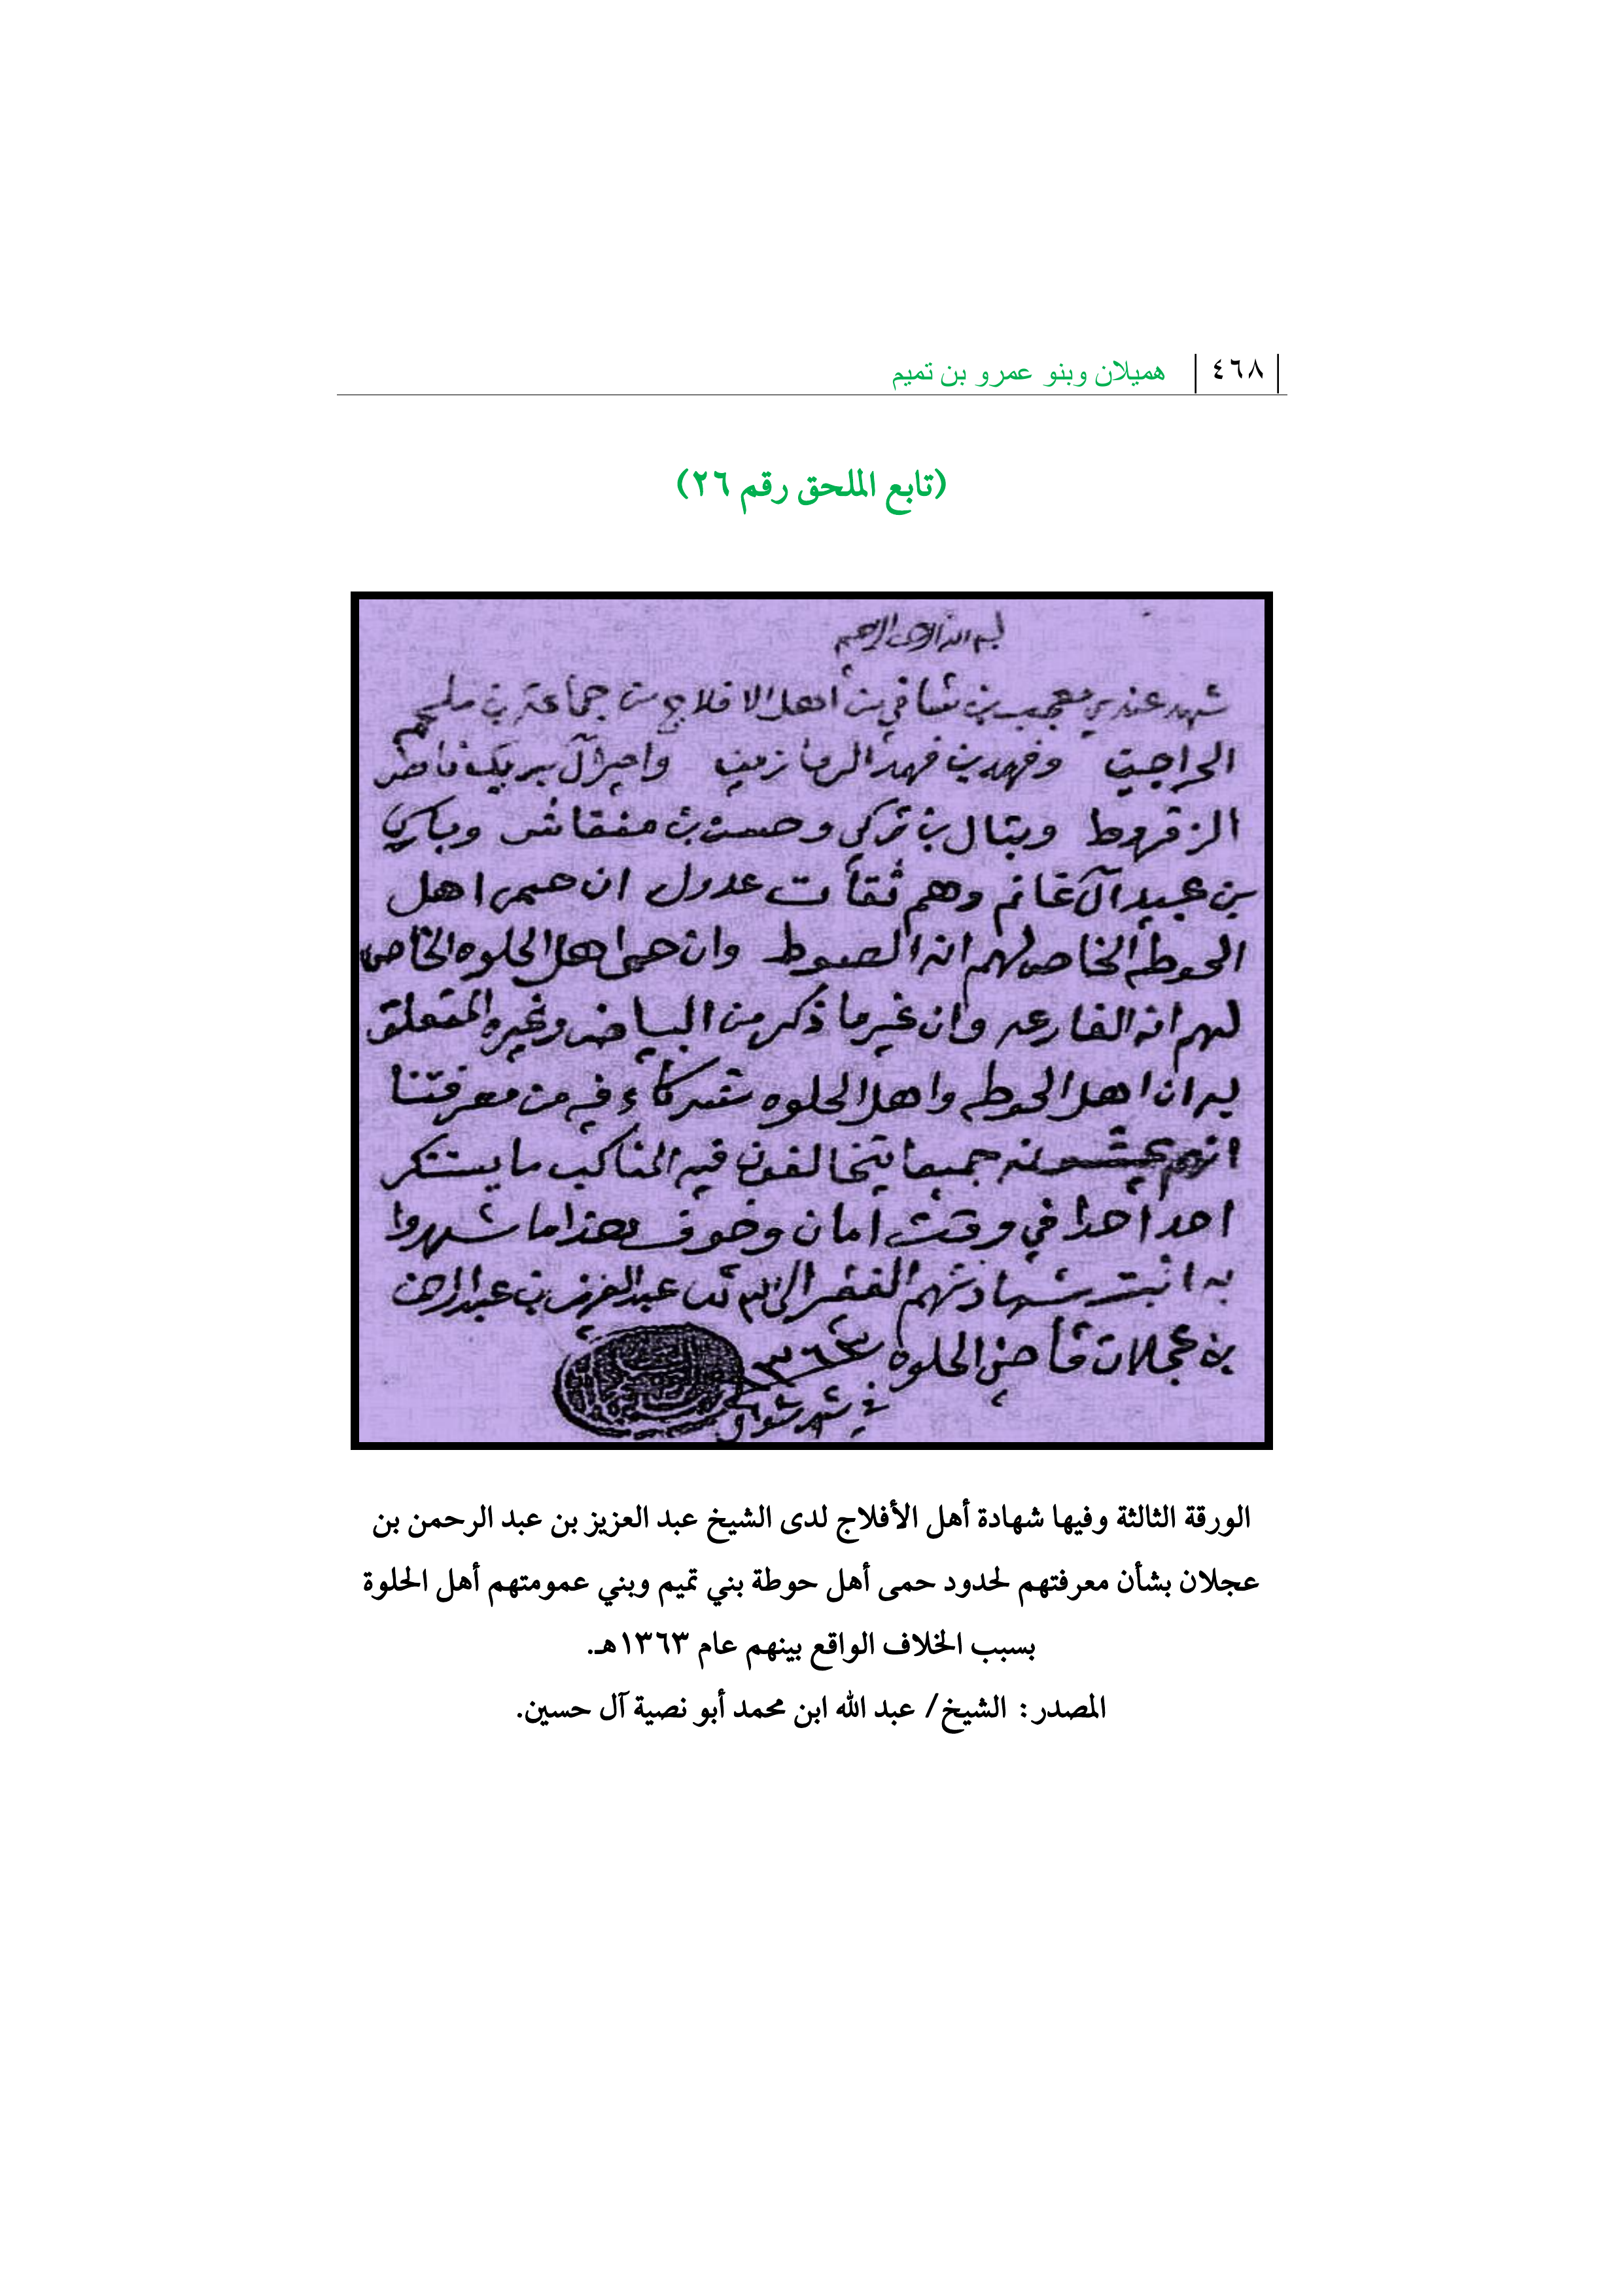 ٤٦٨ هميلان وبنو عمرو بن تميم
(تابع الملحق رقم ٢٦)
بسم الله الرحمن الرحيم
شهد عندي معجب بن شافي بن اهل الافلاج من جماعة بن ملحم
وفهد بن فهد وامير آل بريك ناصر
الزقروط وبتال بن تركي وحسن بن منقاش وباكي
بن عبيد آل غانم وهم ثقات عدول ان حمى اهل
الحوطه الخاص لهم انه الصوط وان حمى اهل الحلوه الخاص
لهم انه الفارعه وان غير ما ذكر من البياض وغيره المتعلق
به ان اهل الحوطه واهل الحلوه شركاء فيه من معرفتنا
انهم جميعا يتخالفون فيه المناكيب ما يستنكر
احد احدا في وقت امان وخوف هذا ما شهدوا
به اثبت شهادتهم الفقير الى الله عبد العزيز بن عبد الرحمن
بن عجلان قاضي الحلوه ١٣٦٣
في شهر شوال
الورقة الثالثة وفيها شهادة أهل الأفلاج لدى الشيخ عبد العزيز بن عبد الرحمن بن
عجلان بشأن معرفتهم لحدود حمى أهل حوطة بني تميم وبني عمومتهم أهل الحلوة
بسبب الخلاف الواقع بينهم عام ١٣٦٣هـ.
المصدر: الشيخ/ عبد الله ابن محمد أبو نصية آل حسين.